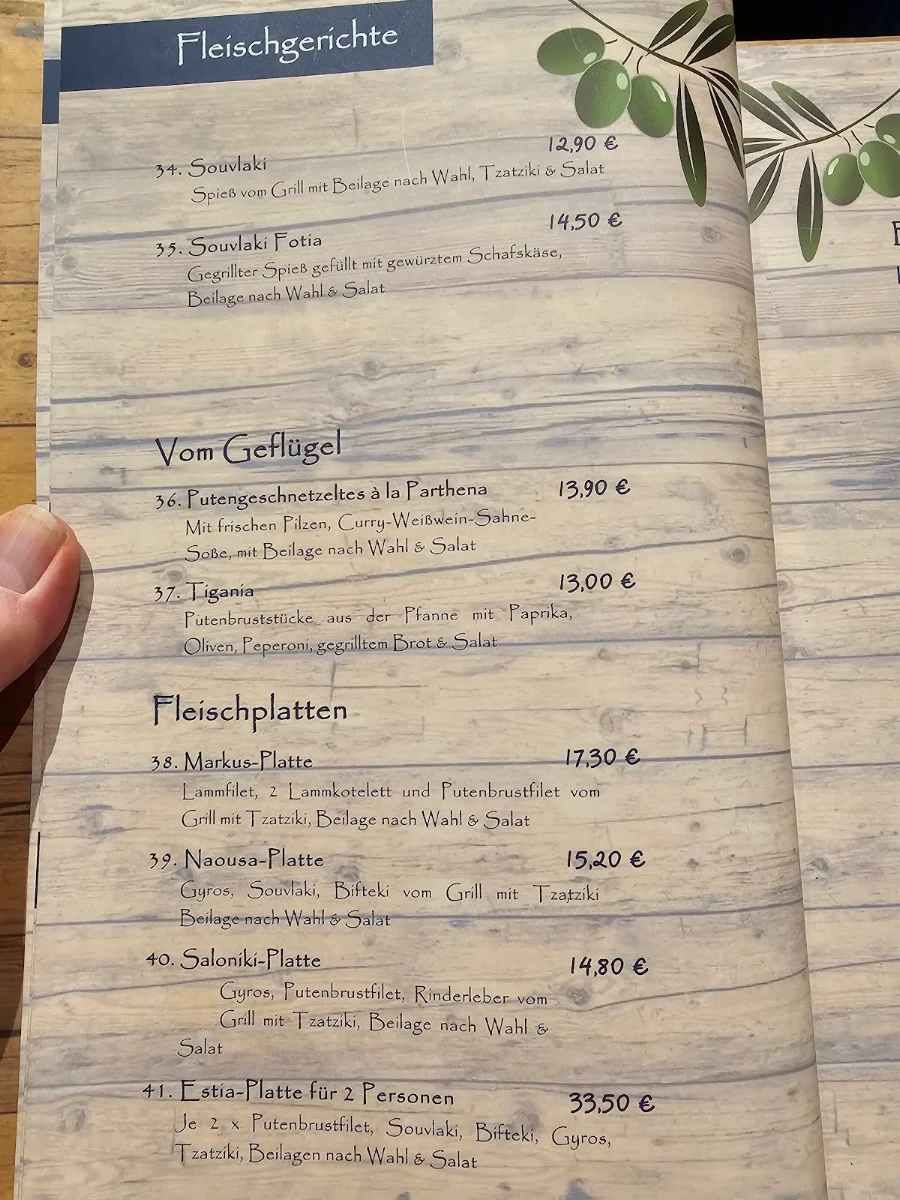 Fleischgerichte
34. Souvlaki 12,90 €
Spieß vom Grill mit Beilage nach Wahl, Tzatziki & Salat
35. Souvlaki Fotia 14,50 €
Gegrillter Spieß gefüllt mit gewürztem Schafskäse,
Beilage nach Wahl & Salat
Vom Geflügel
36. Putengeschnetzeltes à la Parthena 13,90 €
Mit frischen Pilzen, Curry-Weißwein-Sahne-
Soße, mit Beilage nach Wahl & Salat
37. Tigania 13,00 €
Putenbruststücke aus der Pfanne mit Paprika,
Oliven, Peperoni, gegrilltem Brot & Salat
Fleischplatten
38. Markus-Platte 17,30 €
Lammfilet, 2 Lammkotelett und Putenbrustfilet vom
Grill mit Tzatziki, Beilage nach Wahl & Salat
39. Naousa-Platte 15,20 €
Gyros, Souvlaki, Bifteki vom Grill mit Tzatziki
Beilage nach Wahl & Salat
40. Saloniki-Platte 14,80 €
Gyros, Putenbrustfilet, Rinderleber vom
Grill mit Tzatziki, Beilage nach Wahl &
Salat
41. Estia-Platte für 2 Personen 33,50 €
Je 2 x Putenbrustfilet, Souvlaki, Bifteki, Gyros,
Tzatziki, Beilagen nach Wahl & Salat